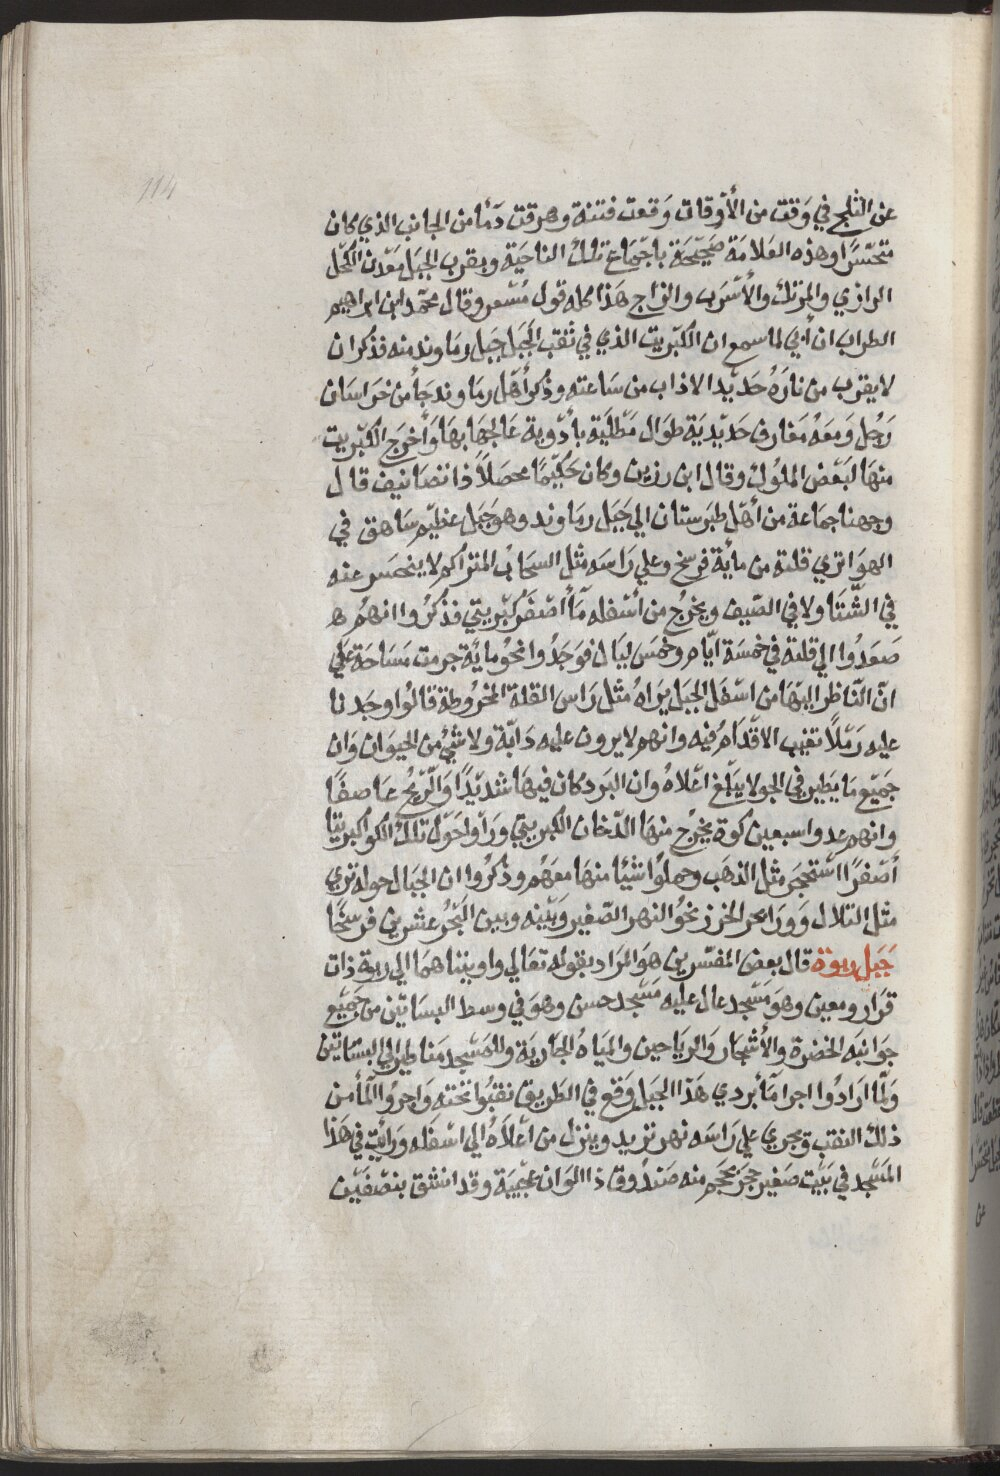 114
عن الثلج في وَقت من الأوقات وَقعت فتنة وهرقت دمًا من الجانب الذي كان
متحسّرًا وهذه العلامة صَحِيْحَة باجمَاع تلك الناحيَة وبقرب الجبَل مَعْدن الكحْل
الرازي والمرتك والأسْرب والزاج هَذا كله قول مُسْعر وقال محمّد ابن ابراهيم
الطراب ان أبي لما سمع ان الكبْريت الذي في ثقب الجَبَل جَبَل رمَاوند منه فذكر ان
لا يقرب من نارَهُ حَديْد الا ذاب من سَاعته وذكر أهْل رمَاوند جَأ من خرَاسَان
رَجُل وَمعَهُ مَغارف حَديْديَة طوَال مَطْليَة بأدْوية عَالجهَا بهَا وَأخرَج الكبْريت
منهَا لبَعْض الملوُك وقال ابن رزين وكان حَكيْمًا محصَلاً ذا تصَانيف قال
وجهنا جمَاعَة من أهْل طبَرستان الي جَبَل رمَاوند وهو جَبَل عظيْم سَاهق في
الهوَا تري قلته من مأية فرسخ وعلي رَاسَه مثل السحَاب المتراكم لا ينحَسر عنه
في الشّتَا ولا في الصّيف ويخرُج من اسْفله مَأ اصْفَر كبْريتي فذكرُوا انهمُ
صَعدُوا الي قلتة في خمسَة ايّام وخمس ليَال فوَجَدُوا نحوُ مايَة جرمت مَسَاحَة علي
انّ النّاظر اليْهَا من اسْفَل الجبَل يرَاهُ مثل رَاس القلة المخرُوطة قالوُا وجَدنا
عليه رَمْلاً تغيب الاقْدَامُ فيه وانهم لا يرون عليه دَابّة ولا شَيْ من الحيوَان وَان
جَميْع مَا يَطير في الجو لا يبْلغ اعْلاهُ وان البَرد كان فيهَا شديْدًا وَالرّيْحُ عَاصفًا
وانهم عدوا سبعين كوة يخرُج منهَا الدّخان الكبريتي وَرَأوا حَوْل تلك الكوا كبريتا
أصْفرًا استحْجَر مثل الذهَب وحملوُا شيْأ منهَا معَهُم وذكرُوا ان الجبَال حوله تري
مثل التلال وَورَا بحر الخرز نحوُ النهر الصّغير وَبيْنه وبين البَحْر عشرين فرسخًا
جَبَل ربوة قال بعض المفسّرين هوَ المرَاد بقوله تعَالي واويناهمَا الي ربوة ذات
قرَار ومعين وهوَ مَسْجد عال عليه مَسْجد حسن وهوَ في وسط البسَاتيْن من جَميْع
جوَانبَه الخضرَة والأشجَار وَالريَاحين والميَاه الجَارية وللمَسْجد مَناظير الي البسَاتين
وَلمّا ارَادُوا اجرا مَأ بردي هَذا الجبَل وَقع في الطَريق نقبُوا تحته وَاجرُوا المَأ من
ذلك النقب وَمجري علي رَاسَه نهر تزيد وينزل من اعْلاهُ الي اسْفله وَرَأيْت في هَذا
المَسْجد في بَيْت صَغير حجَر بحَجم منه صَندُوق ذا الوَان عجيْبَة وقد انشق بنصْفَيْن